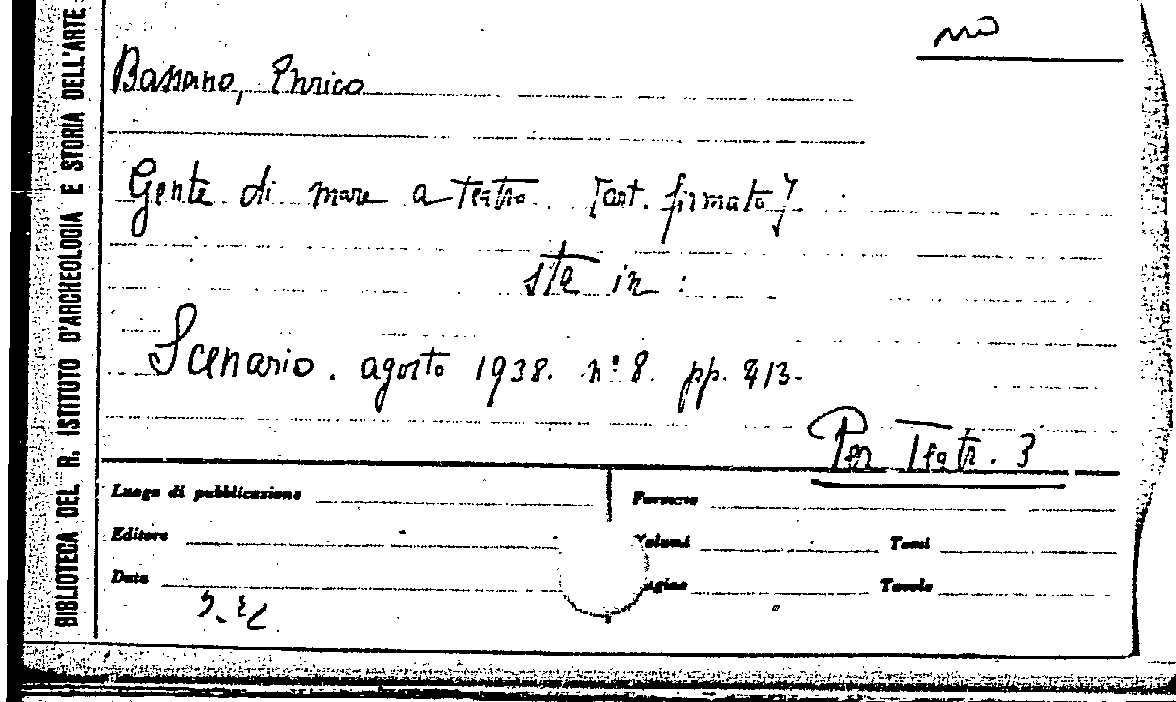 BIBLIOTECA DEL R. ISTITUTO D'ARCHEOLOGIA E STORIA DELL'ARTE
no
Bassano, Enrico
Gente di mare a teatro. [art. firmato]
sta in :
Scenario. agosto 1938. n° 8. pp. 413-
Per Teatr. 3
Luogo di pubblicazione
Formato
Editore
Volumi
Tomi
Data
agine
Tavole